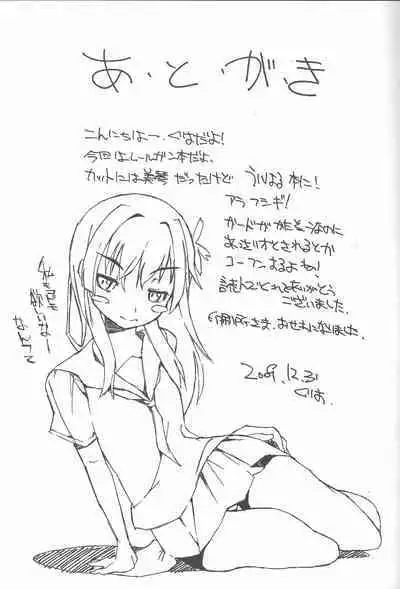 あ・と・が・き
こんにちはー、ぐはだよ!
今回はレールガン本だよ。
カットには美琴だったけど ういはる本に!
アラフシギ!
ガードがかたそうなのに
あっさりオトされるとか
コーフンするよね!
読んでくれてありがとう
ございました。
印刷所さま、おせわになりました。
2009.12.31
ぐは。
なんつて